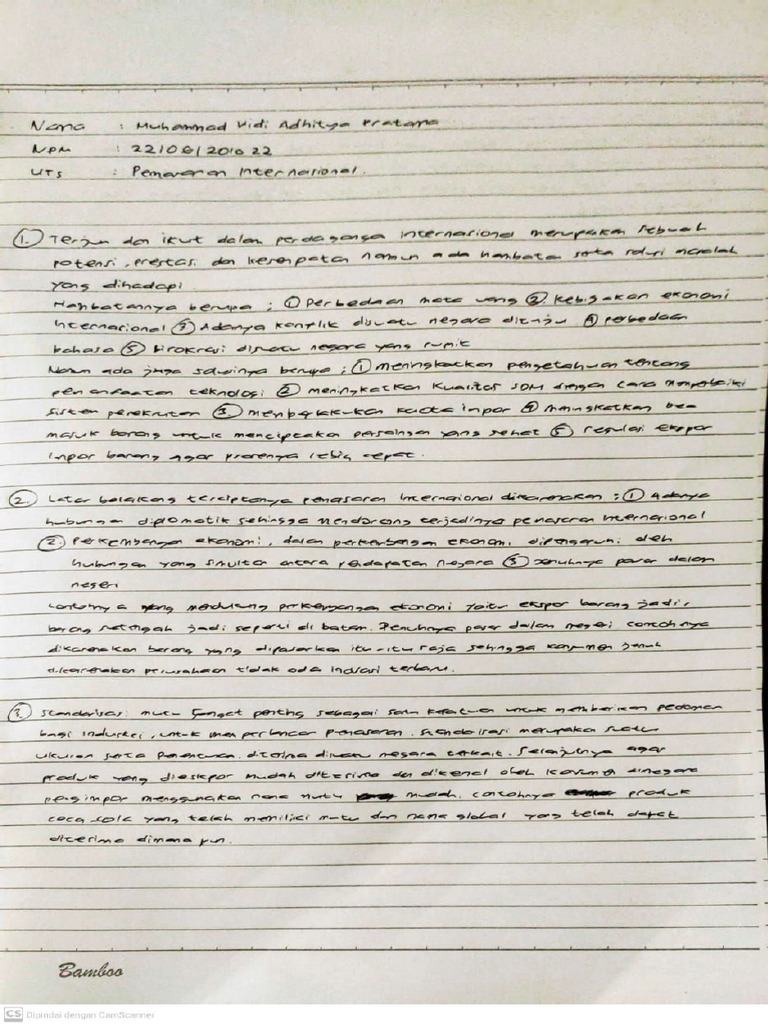 Nama : Muhammad Vidi Adhitya Pratama
NPM : 22/06/2010 22
UTS : Pemasaran Internasional.
1. Terjun dan ikut dalam perdaganga internasional merupakan sebuah
potensi, prestasi dan kesempatan namun ada hambatan serta solusi masalah
yang dihadapi
Hambatannya berupa ; 1 Perbedaan mata uang 2 Kebijakan ekonomi
Internasional 3 Adanya konflik disuatu negara dituju 4 perbedaan
bahasa 5 birokrasi disuatu negara yang rumit
Namun ada juga solusinya berupa ; 1 meningkatkan pengetahuan tentang
pemanfaatan teknologi 2 meningkatkan kualitas SDM dengan cara memperbaiki
sistem perekrutan 3 memberlakukan kuota impor 4 meningkatkan bea
masuk barang untuk menciptakan persaingan yang sehat 5 regulasi ekspor
impor barang agar prosesnya lebih cepat.
2. Latar belakang terciptanya pemasaran Internasional dikarenakan ; 1 Adanya
hubungan diplomatik sehingga mendorong terjadinya pemasaran Internasional
2. Perkembangan ekonomi, dalam perkembangan ekonomi dipengaruhi oleh
hubungan yang simultan antara pendapatan negara 3 Jenuhnya pasar dalam
negeri
contohnya yang mendukung perkembangan ekonomi yaitu ekspor barang jadi,
barang setengah jadi seperti di batam. Penuhnya pasar dalam negeri contohnya
dikarenakan barang yang dipasarkan itu-itu saja sehingga konsumen jenuh
dikarenakan perusahaan tidak ada inovasi terbaru.
3. Standarisasi mutu sangat penting sebagai satu kesatuan untuk memberikan pedoman
bagi industri, untuk memperlancar pemasaran. Standarisasi merupakan suatu
ukuran serta penentuan diterima disuatu negara terkait. Selanjutnya agar
produk yang diekspor mudah diterima dan dikenal oleh konsumen dinegara
pengimpor menggunakan nama mutu mudah. contohnya produk
coca cola yang telah memiliki mutu dan nama global yang telah dapat
diterima dimana pun.
Bamboo
CS Dipindai dengan CamScanner